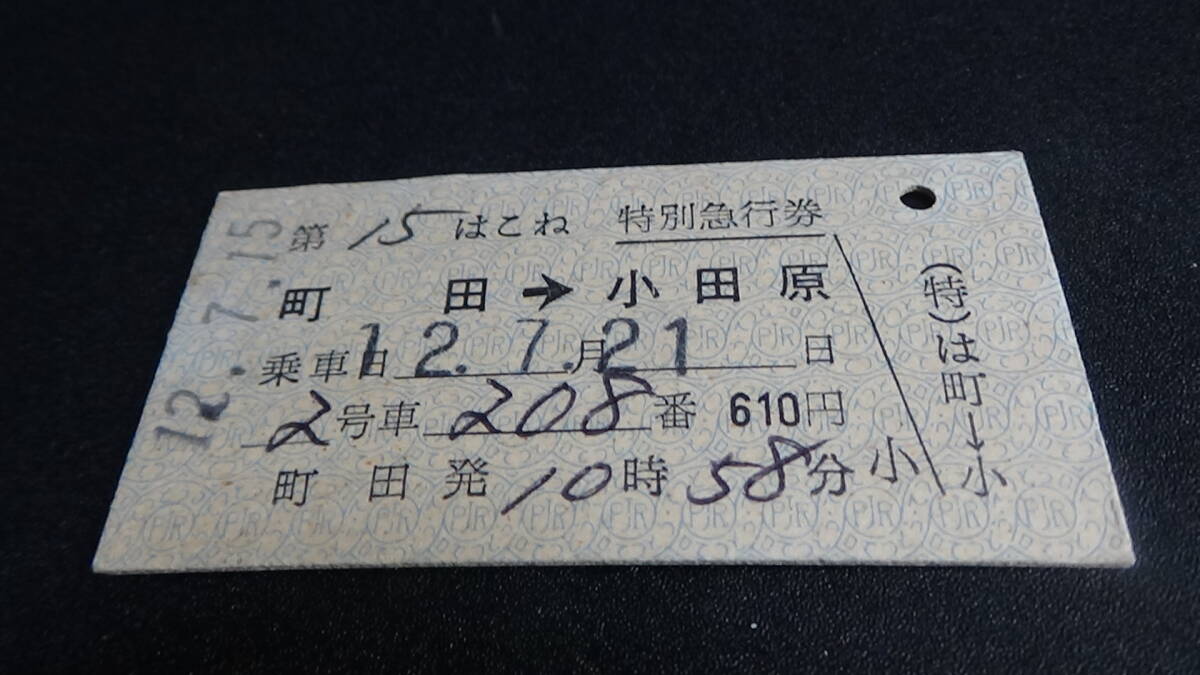 12.7.15
第15はこね 特別急行券
町田→小田原
乗車日12.7.月21日
2号車208番 610円
町田発10時58分 小
(特)は町→小